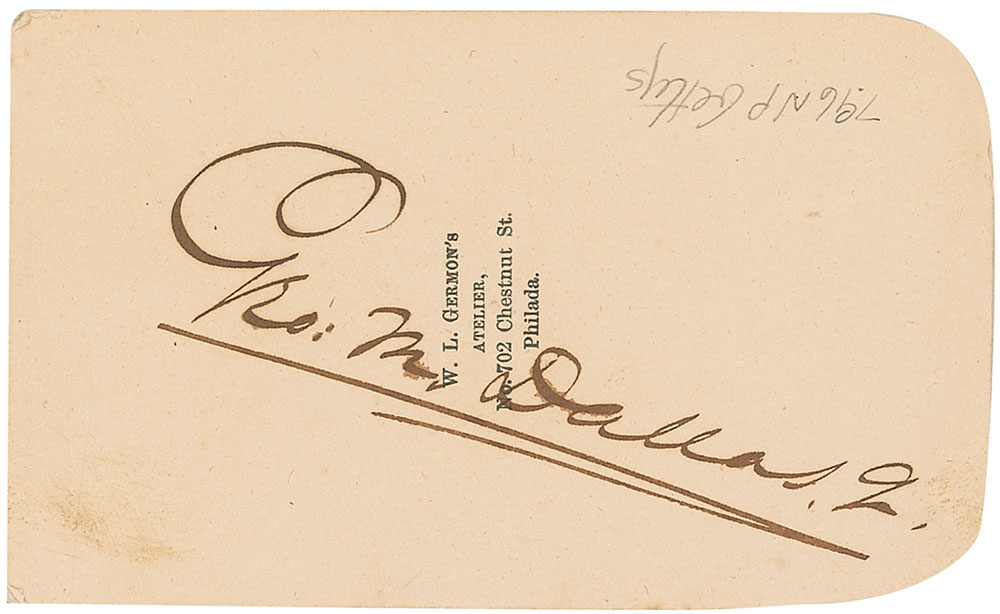 Geo: M. Dallas. 2.
W. L. GERMON'S
ATELIER,
No. 702 Chestnut St.
Philada.
796 NP Gettys